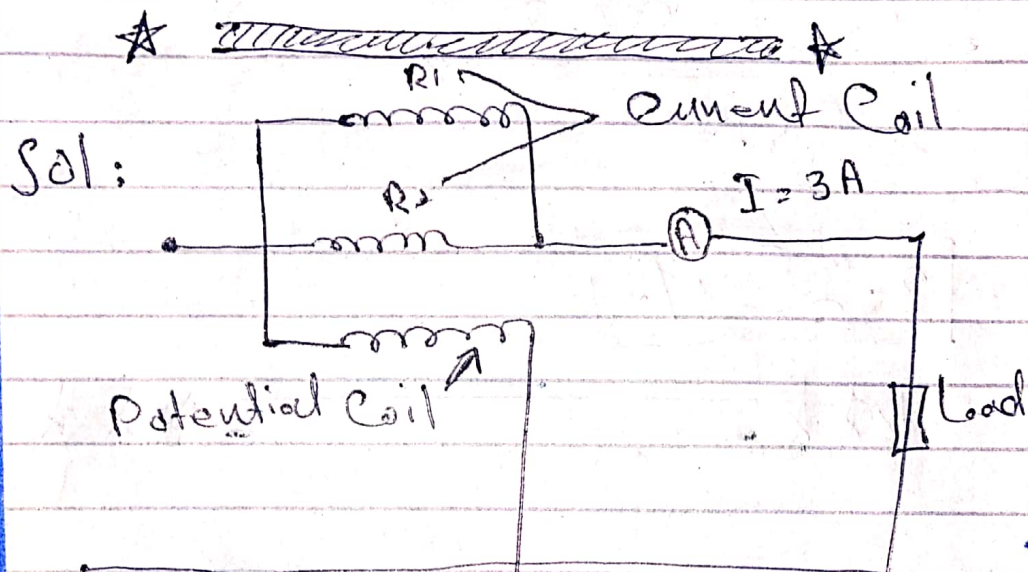 R1
Current Coil
Sol:
R2
I = 3A
A
Potential Coil
Load